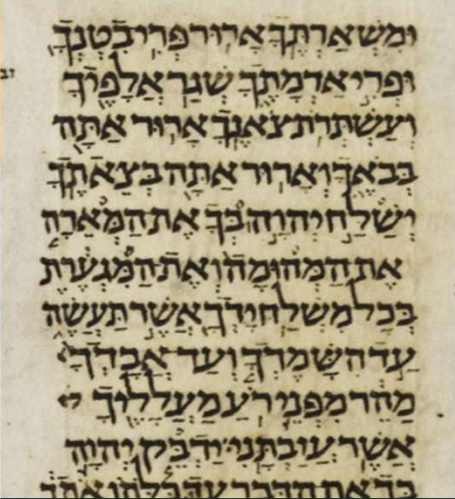 וּמִשְׁאַרְתֶּךָ אָרוּר פְּרִי בִטְנְךָ
וּפְרִי אַדְמָתֶךָ שְׁגַר אֲלָפֶיךָ
וְעַשְׁתְּרֹת צֹאנֶךָ אָרוּר אַתָּה
בְּבֹאֶךָ וְאָרוּר אַתָּה בְּצֵאתֶךָ
יְשַׁלַּח יְהוָה בְּךָ אֶת הַמְּאֵרָה
אֶת הַמְּהוּמָה וְאֶת הַמִּגְעֶרֶת
בְּכָל מִשְׁלַח יָדְךָ אֲשֶׁר תַּעֲשֶׂה
עַד הִשָּׁמֶדְךָ וְעַד אֲבָדְךָ
מַהֵר מִפְּנֵי רֹעַ מַעֲלָלֶיךָ
אֲשֶׁר עֲזַבְתָּנִי׃ יַדְבֵּק יְהוָה
בך את הדבר עד כלתו אתך